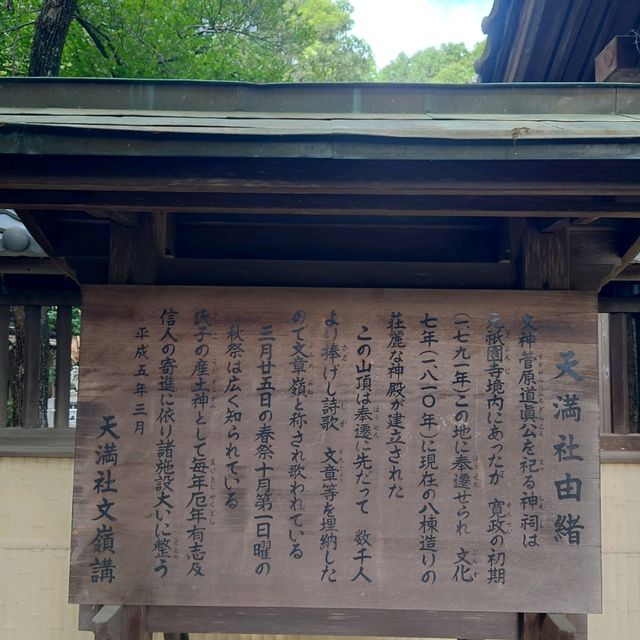 天満社由緒
文神菅原道眞公を祀る神祠は
元祇園寺境内にあったが 寛政の初期
(一七九一年)この地に奉遷せられ 文化
七年(一八一〇年)に現在の八棟造りの
荘麗な神殿が建立された
この山頂は奉遷に先だって 数千人
より捧げし詩歌 文章等を埋納した
ので文章嶺と称され歌われている
三月廿五日の春祭十月第一日曜の
秋祭は広く知られている
氏子の産土神として毎年厄年有志及
信人の寄進に依り諸施設大いに整う
平成五年三月
天満社文嶺講